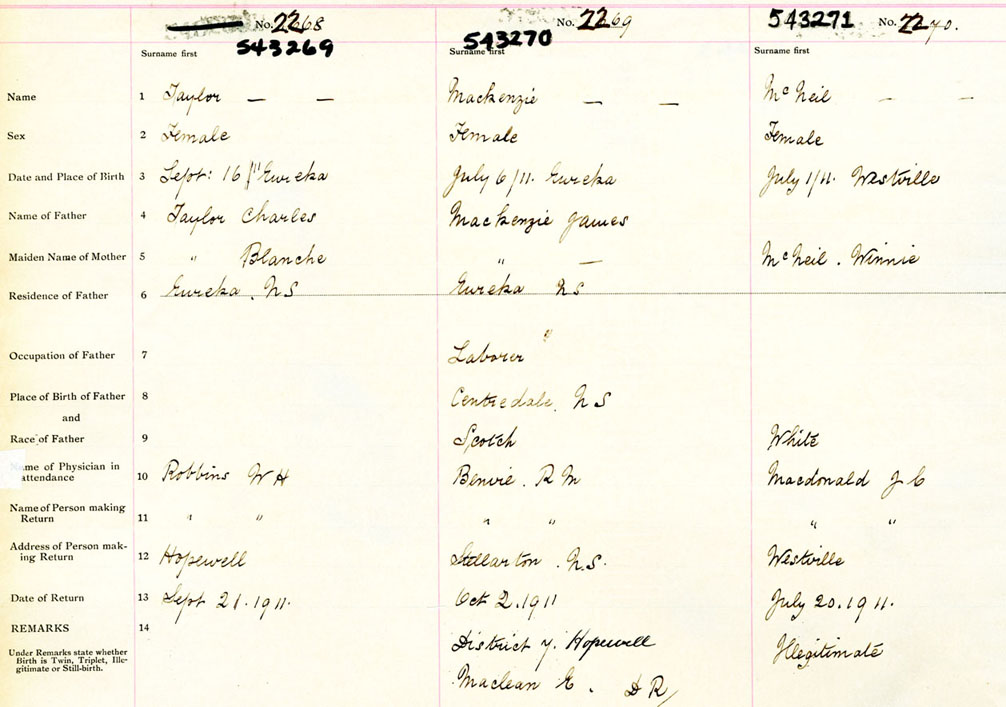 No. 2268 No. 2269 543271 No. 2270.
543269 543270
Surname first Surname first Surname first
Name 1 Taylor — — Mackenzie — — McNeil — —
Sex 2 Female Female Female
Date and Place of Birth 3 Sept: 16/11 Eureka July 6/11. Eureka July 1/11. Westville
Name of Father 4 Taylor Charles Mackenzie James
Maiden Name of Mother 5 " Blanche " — McNeil. Winnie
Residence of Father 6 Eureka. N S Eureka N S
Occupation of Father 7 Laborer
Place of Birth of Father 8 Centredale. N S
and
Race of Father 9 Scotch White
Name of Physician in
attendance 10 Robbins W H Benvie. R M Macdonald J C
Name of Person making
Return 11 " " " " " "
Address of Person mak-
ing Return 12 Hopewell Stellarton. N.S. Westville
Date of Return 13 Sept 21.1911. Oct 2.1911 July 20.1911.
REMARKS 14
Under Remarks state whether
Birth is Twin, Triplet, Ille-
gitimate or Still-birth.
District 7. Hopewell Illegitimate
Maclean E. D R/